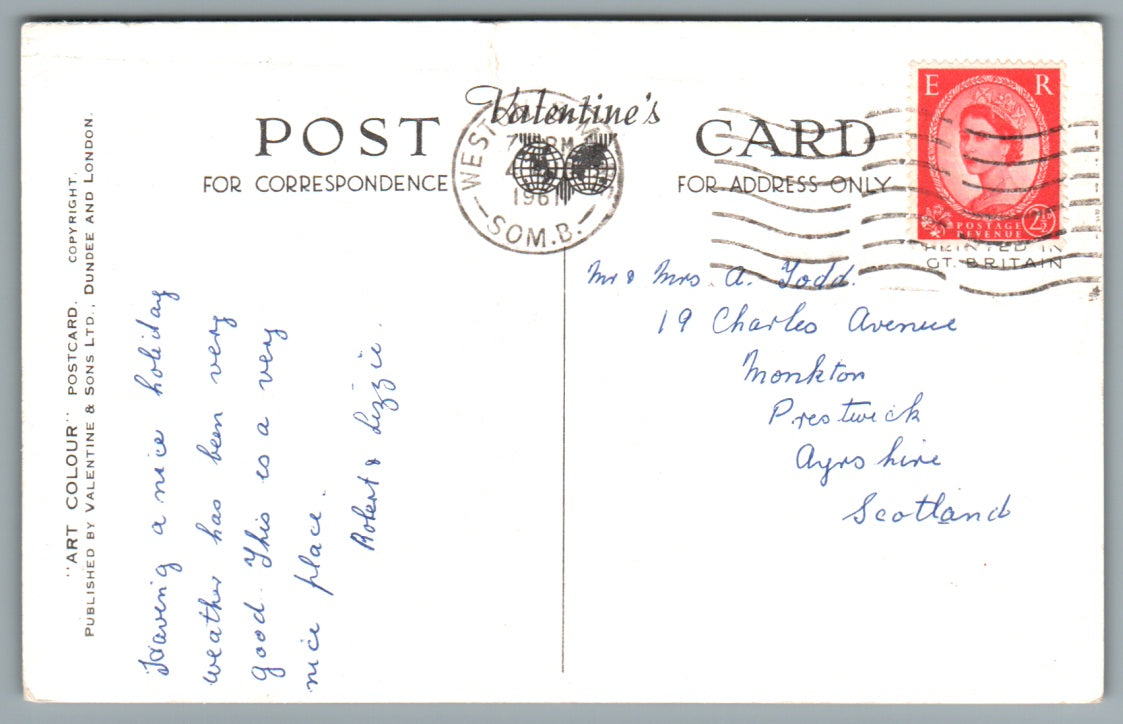 "ART COLOUR" POSTCARD. COPYRIGHT.
PUBLISHED BY VALENTINE & SONS LTD., DUNDEE AND LONDON.
POST CARD
Valentine's
FOR CORRESPONDENCE
FOR ADDRESS ONLY
1961
SOM.B.
E R
POSTAGE
REVENUE
2½D
PRINTED IN
GT. BRITAIN
Having a nice holiday
weather has been very
good. This is a very
nice place.
Robert & Lizzie.
Mr & Mrs. A. Todd.
19 Charles Avenue
Monkton
Prestwick
Ayrshire
Scotland